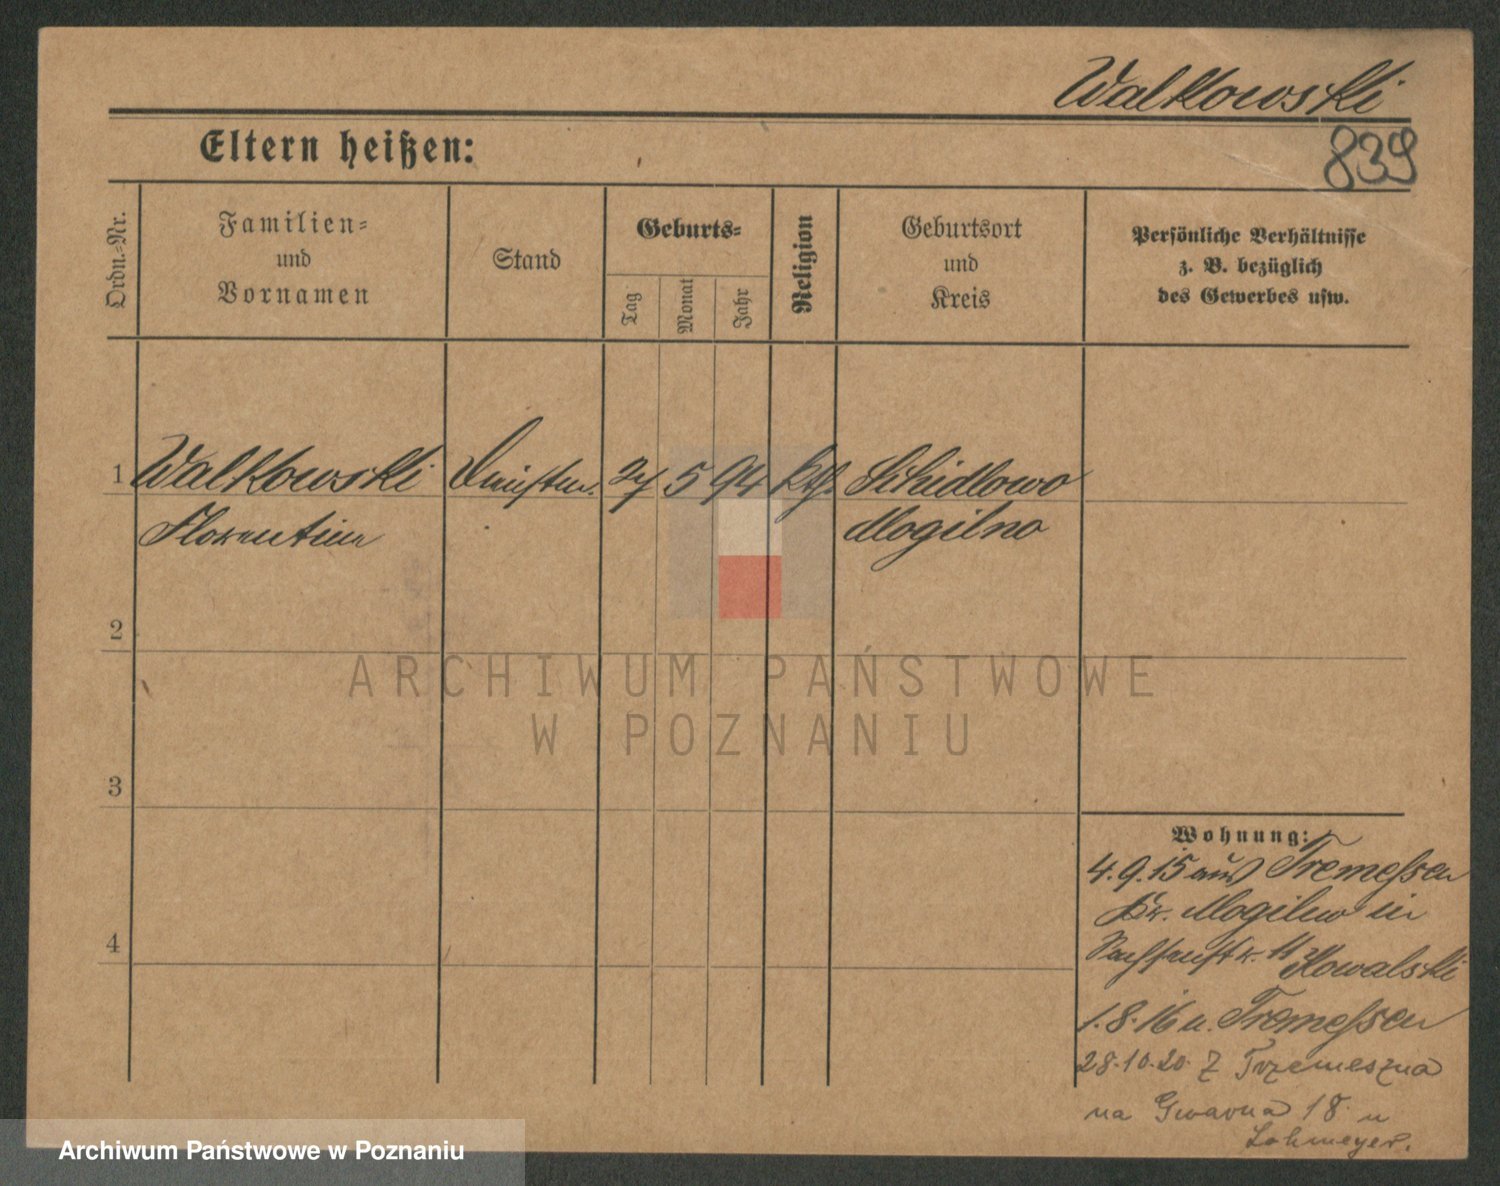 Walkowski
839
Eltern heißen:
Ordn.-Nr.
Familien-
und
Vornamen
Stand
Geburts-
Tag
Monat
Jahr
Religion
Geburtsort
und
Kreis
Persönliche Verhältnisse
z. B. bezüglich
des Gewerbes usw.
1 Walkowski 27 5 94 kth. Schidlowo
Florentine Mogilno
2
3
4
Wohnung:
4.9.15 aus Tremessen
Kr. Mogilno in
11 Kowalski
1.8.16 n. Tremessen
28.10.20 Z Trzemeszna
na Gwarna 18 u
Lohmeyer.
ARCHIWUM PAŃSTWOWE
W POZNANIU
Archiwum Państwowe w Poznaniu